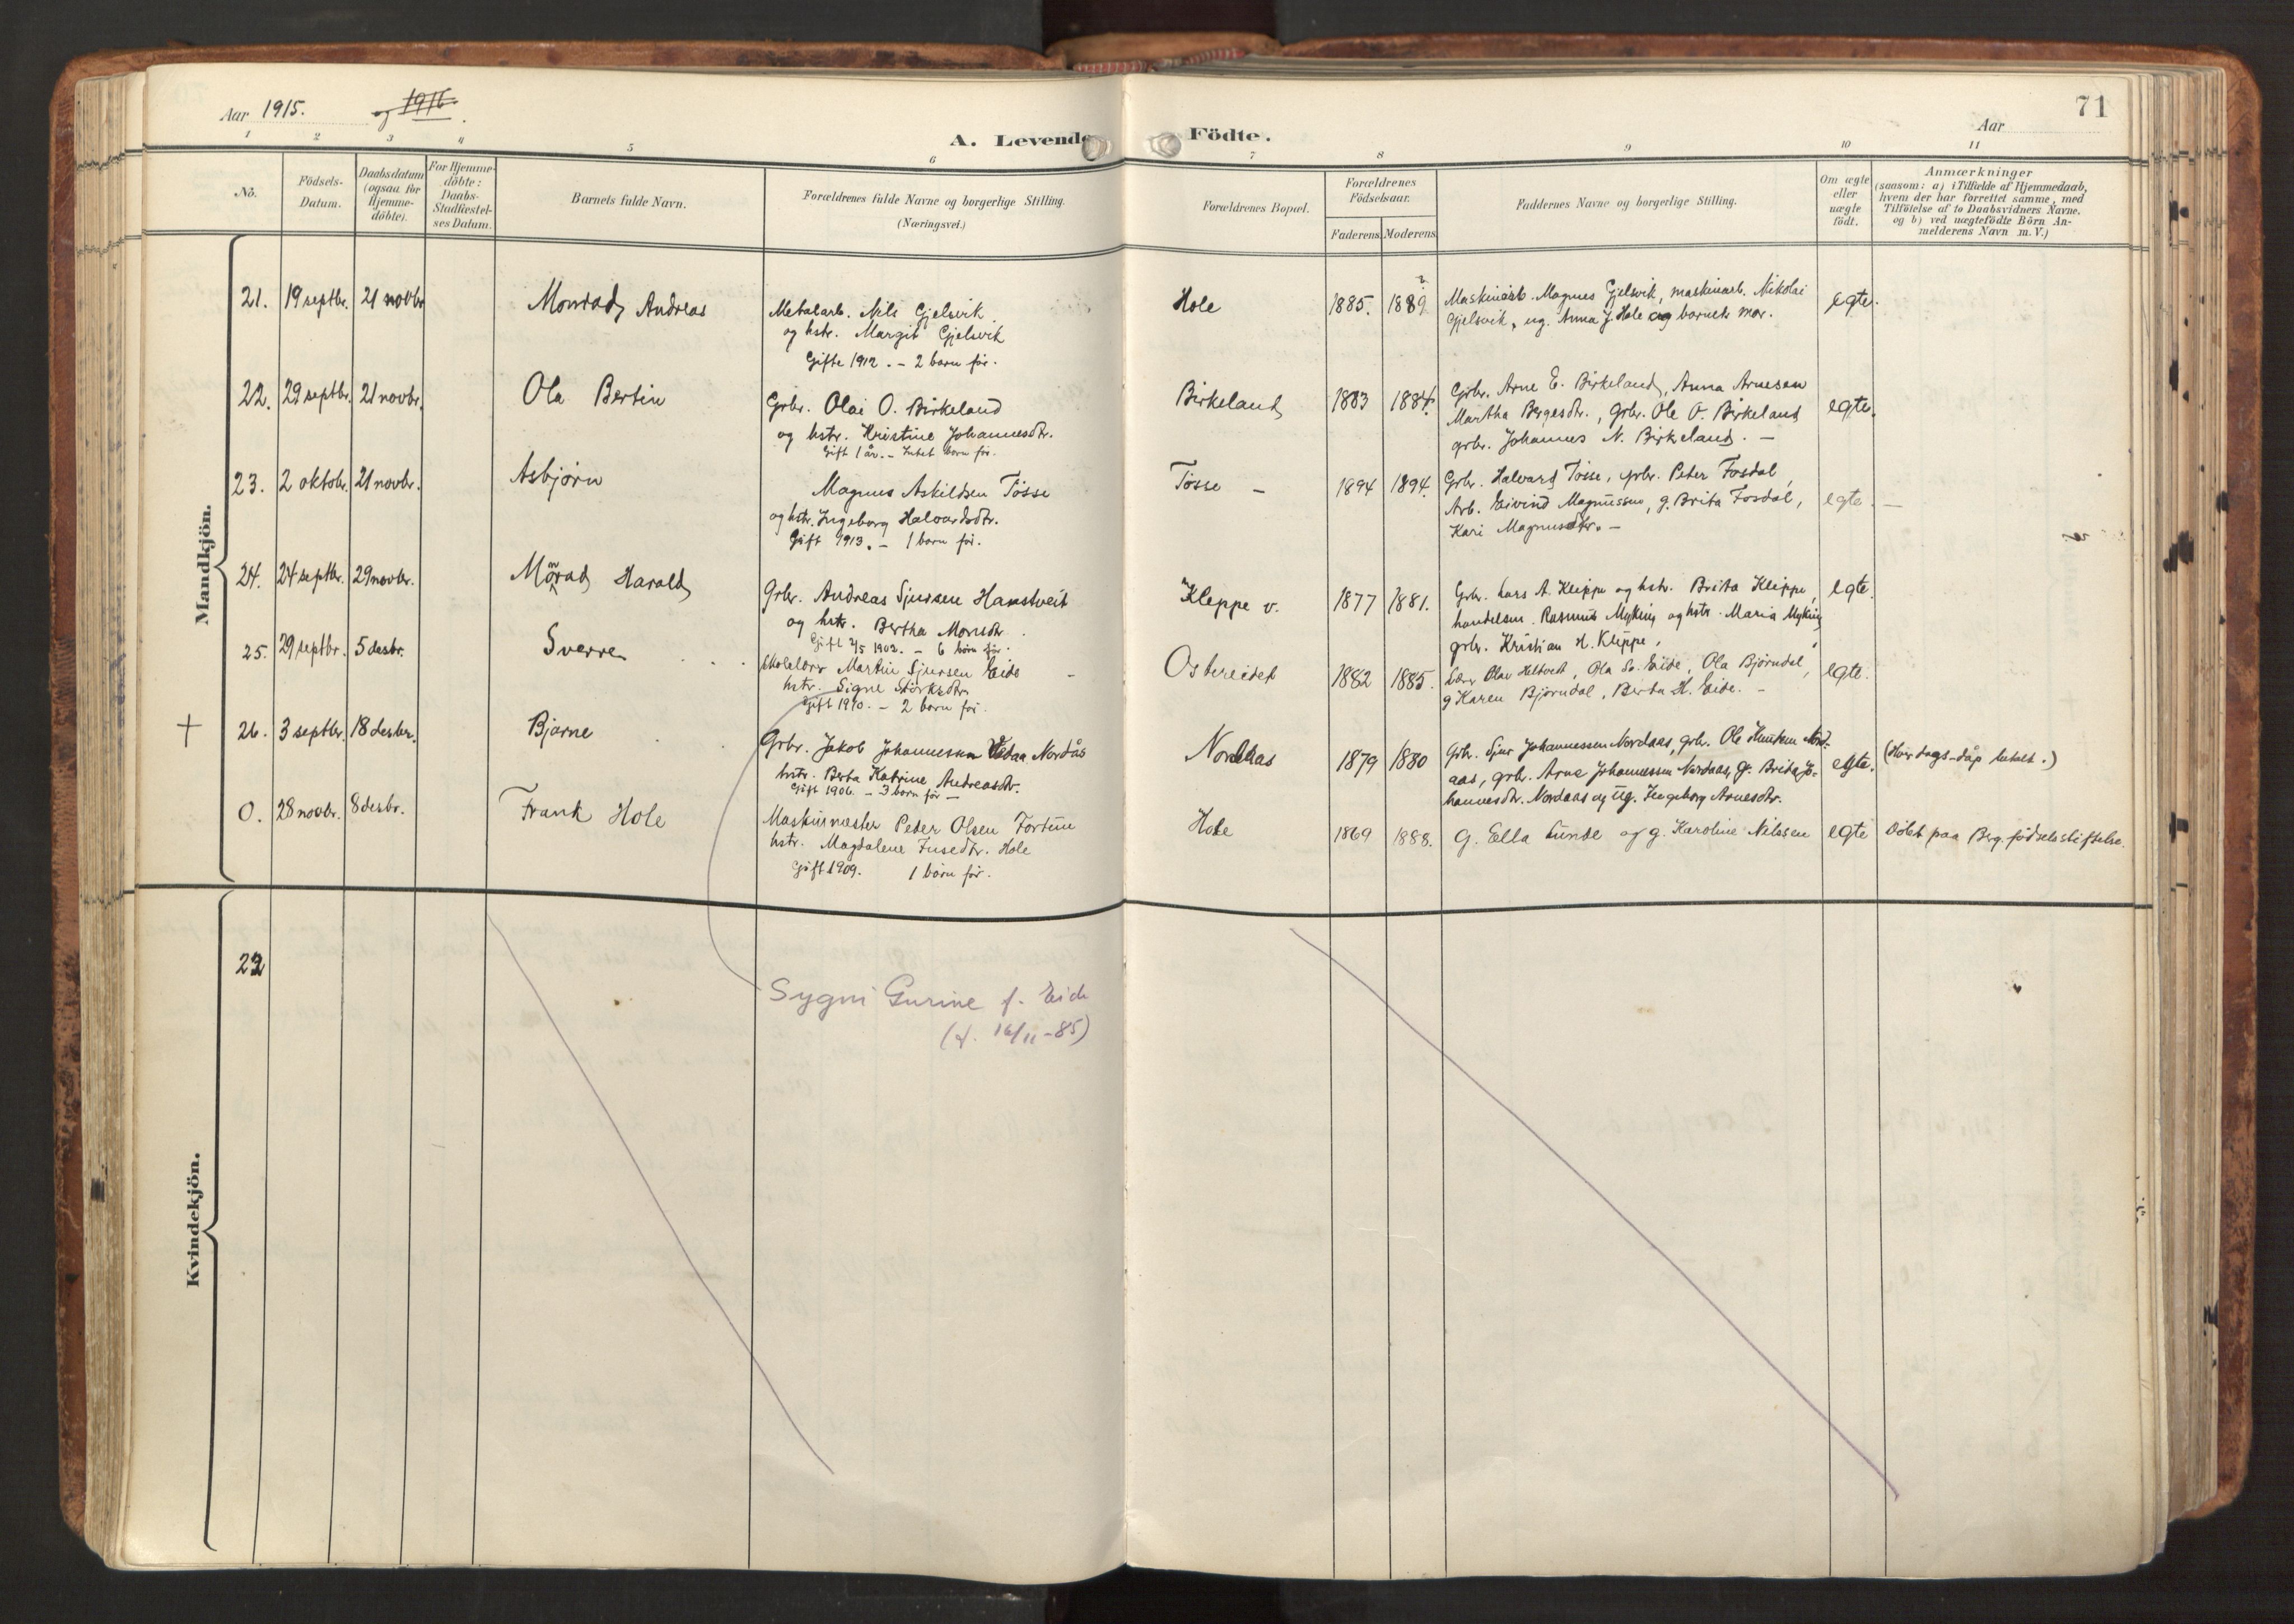 71
Aar 1915. og 1916.
Aar
A. Levende Födte.
1 2 3 4 5 6 7 8 9 10 11
No.
Födsels-Datum.
Daabsdatum (ogsaa for Hjemme-döbte).
For Hjemme-döbte: Daabs-Stadfæstel-ses Datum.
Barnets fulde Navn.
Forældrenes fulde Navne og borgerlige Stilling.
(Næringsvei.)
Forældrenes Bopæl.
Forældrenes Födselsaar.
Faderens. Moderens.
Faddernes Navne og borgerlige Stilling.
Om ægte eller uægte födt.
Anmærkninger
(saasom: a) i Tilfælde af Hjemmedaab,
hvem der har forrettet samme, med
Tilföielse af to Daabsvidners Navne.
og b) ved uægtefödte Börn An-
melderens Navn m.V.)
Mandkjön.
21. 19 septbr. 21 novbr Monrad Andreas
Metalarb. Nils Gjelsvik
og hstr. Margit Gjelsvik
Gifte 1912. - 2 barn før.
Hole 1885. 1889
Maskinarb. Magnus Gjelsvik, maskinarb. Nikolai
Gjelsvik, ug. Anna J. Hole og barnets mor.
egte.
22. 29 septbr. 21 novbr. Ola Bertin
Grbr. Olai O. Birkeland
og hstr. Kristine Johannesdtr.
Gift 1 år. - Intet barn før.
Birkeland 1883 1884.
Grbr. Arne E. Birkeland, Anna Arnesen
Martha Bergesdtr., Grbr. Ole O. Birkeland
grbr. Johannes N. Birkeland. -
egte.
23. 2 oktobr. 21 novbr. Asbjørn
Magnus Askildsen Tösse
og hstr. Ingeborg Halvardsdtr.
Gift 1913. - 1 barn før.
Tösse - 1894 1894.
Grbr. Halvard Tosse, grbr. Peter Fosdal,
Arb. Eivind Magnussen, g. Brita Fosdal,
Kari Magnusdtr. -
egte. -
24. 24 septbr. 29 novbr. Monrad Harald
Grbr. Andreas Sjursen Hanstveit
og hstr. Bertha Monsdtr.
Gift 2/5 1902. - 6 børn før.
Kleppe v. 1877 1881.
Grbr. Lars A. Kleppe og hstr. Brita Kleppe,
handelsm. Rasmus Myking og hstr. Maria Myking
grbr. Kristian H. Kleppe,
egte.
25. 29 septbr. 5 desbr. Sverre
Skolelærer Martin Sjursen Eide
hstr. Signe Størksdtr.
Gift 1910. - 2 barn før.
Ostereidet 1882 1885.
Lærer Olav Heltveit, Ola So. Eide, Ola Bjørndal,
g Karen Bjørndal, Berta H. Eide. -
egte.
+ 26. 3 septbr. 18 desbr. Bjarne
Grbr. Jakob Johannessen Nordås
hstr. Berta Katrine Andreasdtr.
Gift 1906. - 3 barn før -
Nordaas 1879 1880
Grbr. Sjur Johannessen Nordaas, grbr. Ole Knutsen Nord-
aas, grbr. Arne Johannessen Nordaas, g. Brita Jo-
hannesdtr. Nordaas og ug. Ingeborg Arnesdtr.
egte. (Hverdags-dåp betalt.)
0. 28 novbr. 8 desbr. Frank Hole
Maskinmester Peder Olsen Fortun
hstr. Magdalene Fusedtr. Hole
Gift 1909. 1 barn før.
Hole 1869 1888.
G. Ella Lunde og g. Karoline Nilssen
egte Döbt paa Berg. fødselsstiftelse.
Kvindekjön.
22
Sygni Gurine f. Eide
(f. 16/11-85)